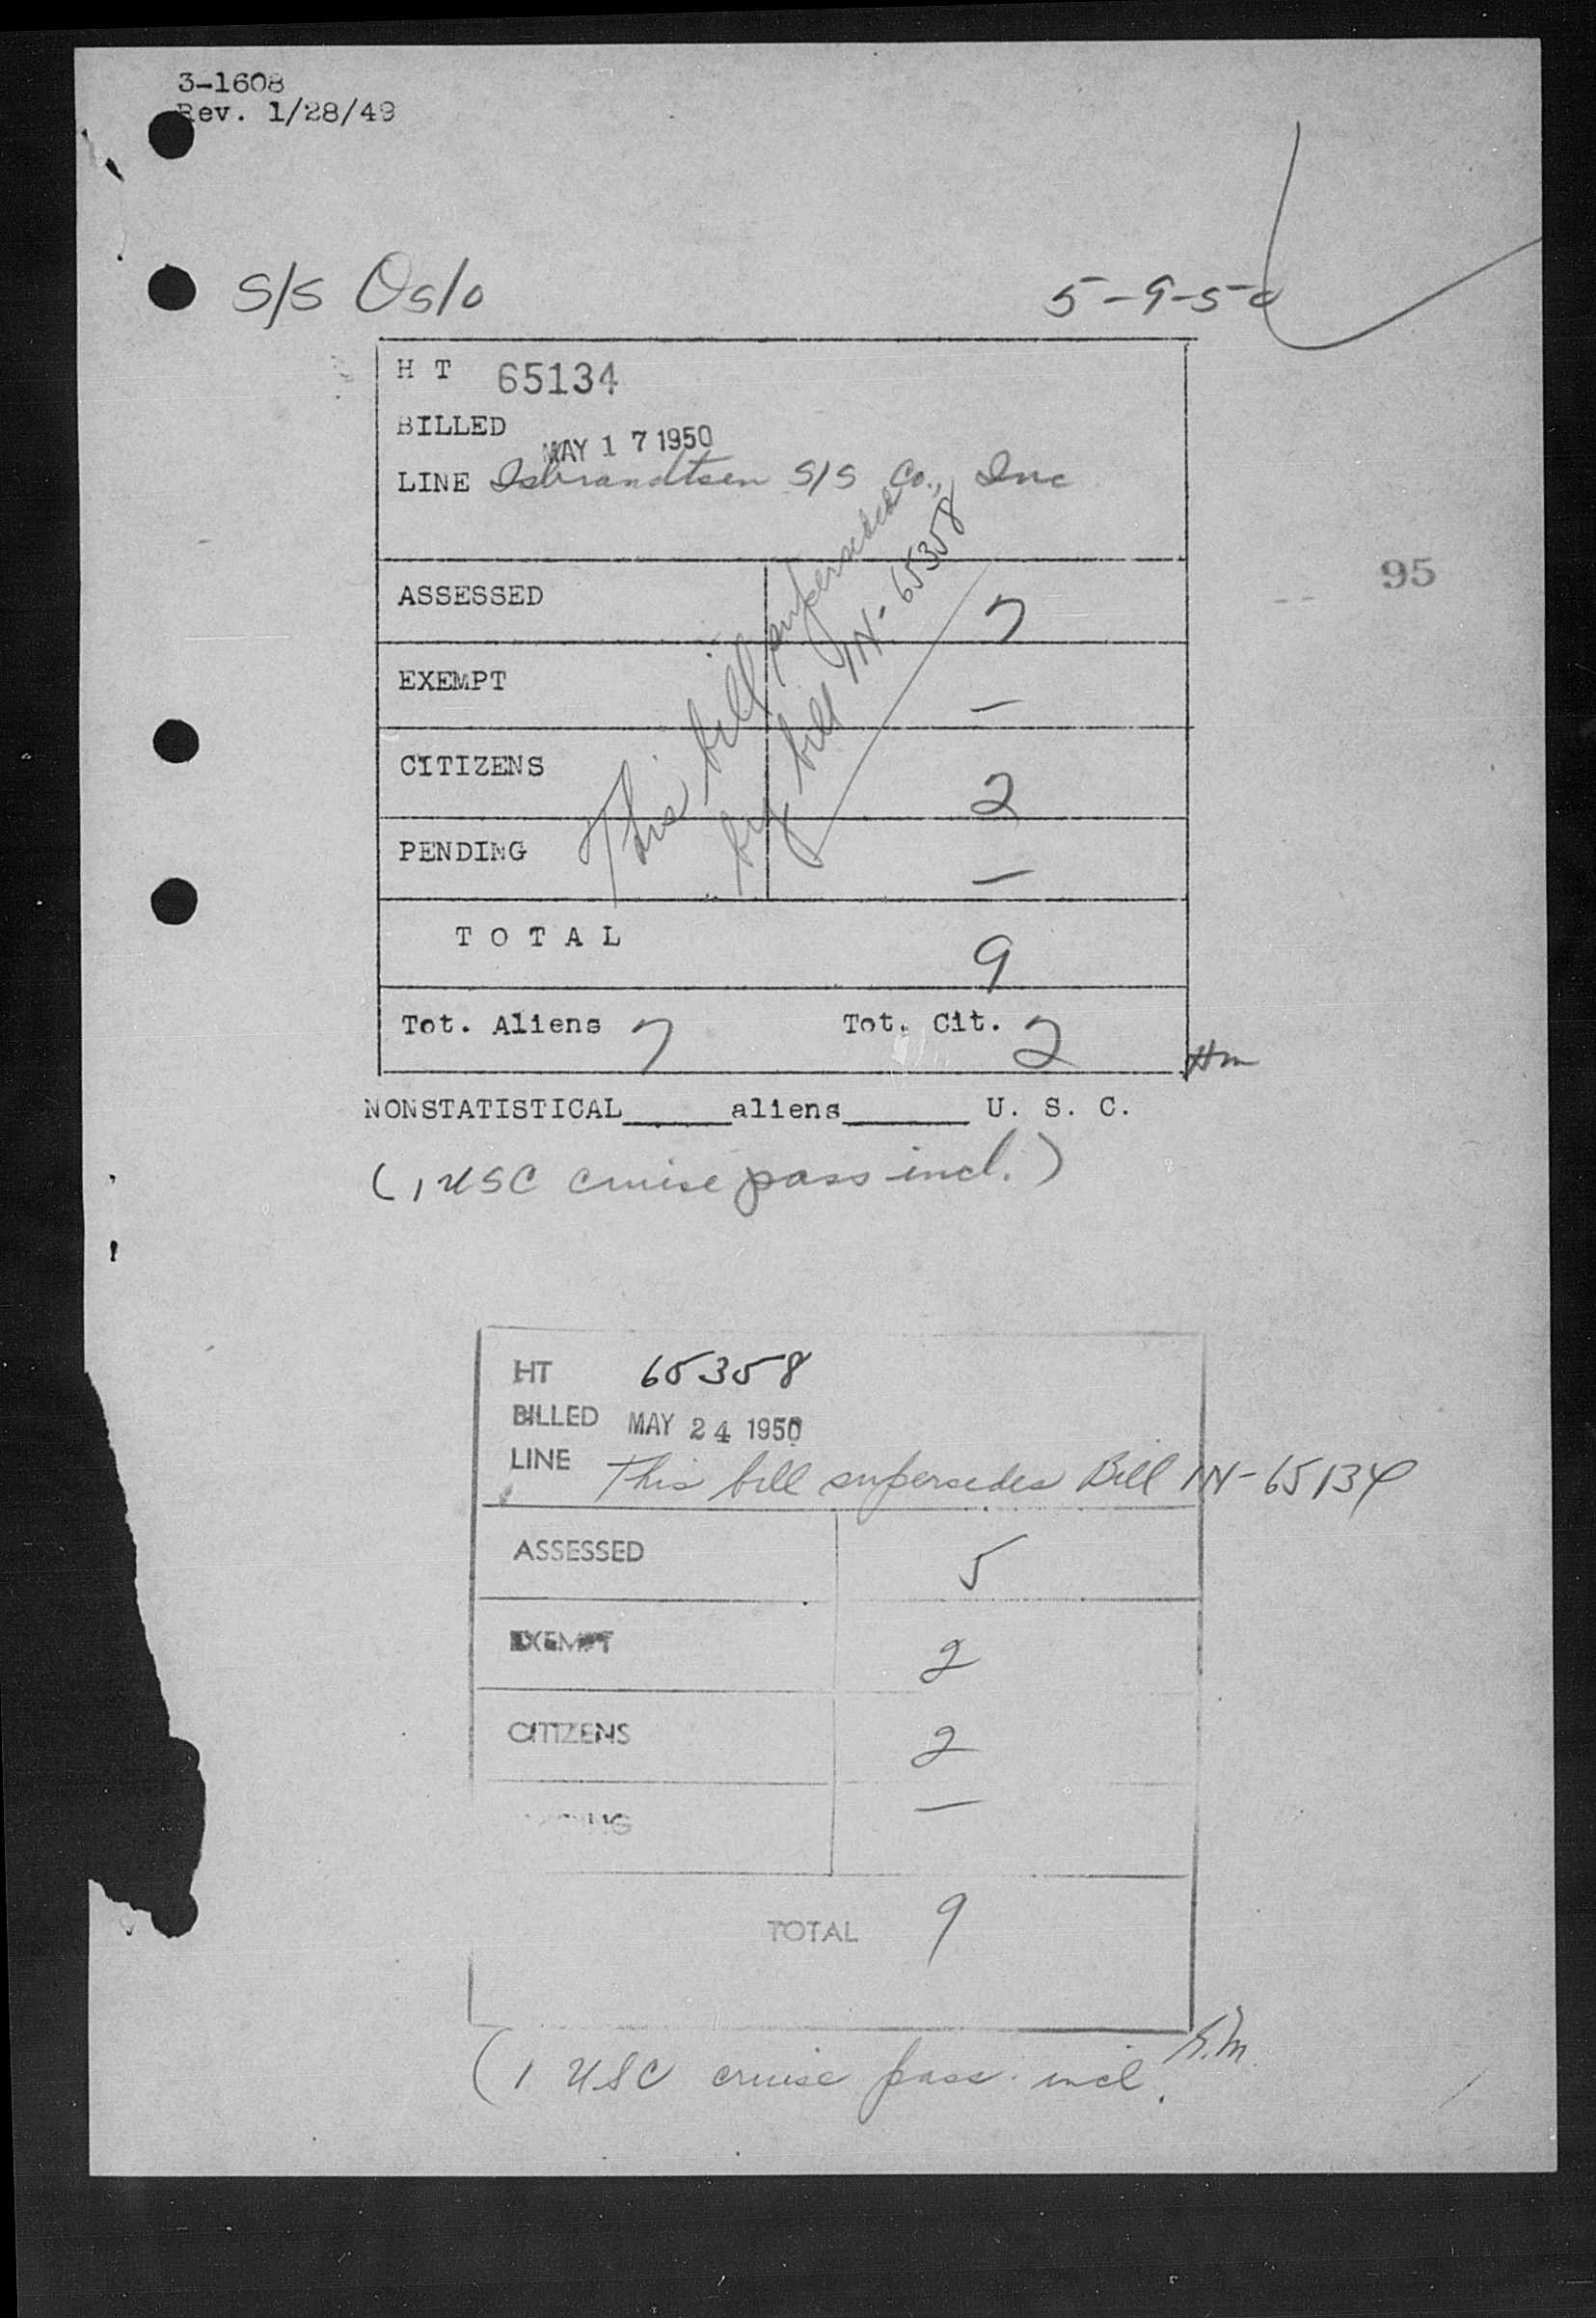 3-1608
Rev. 1/28/49
S/S Oslo 5-9-50
H T 65134
BILLED MAY 17 1950
LINE Isbrandtsen S/S Co., Inc
95
This bill superseded
by bill HN-65358
ASSESSED 7
EXEMPT —
CITIZENS 2
PENDING —
T O T A L 9
Tot. Aliens 7 Tot. Cit. 2
Hm
NONSTATISTICAL_____aliens______ U. S. C.
(1 USC cruise pass incl.)
HT 65358
BILLED MAY 24 1950
LINE This bill supersedes Bill HN-65134
ASSESSED 5
EXEMPT 2
CITIZENS 2
—
TOTAL 9
(1 USC cruise pass. incl.